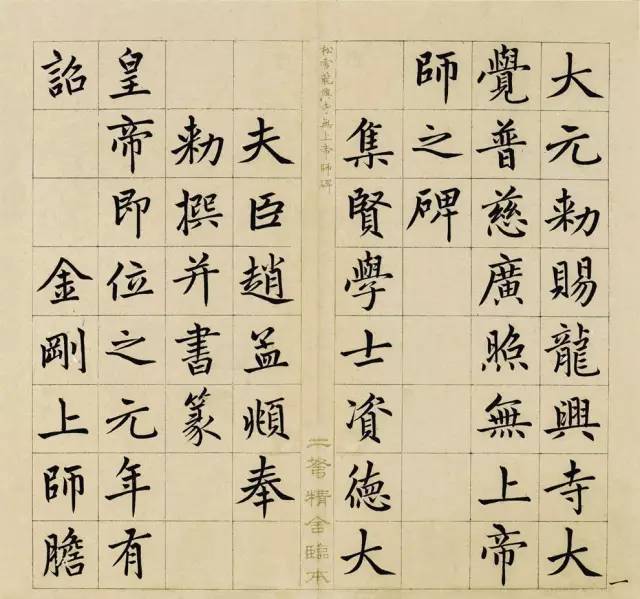 大元勑賜龍興寺大
覺普慈廣照無上帝
師之碑
集賢學士資德大
松雪龍興寺無上帝師碑
二弩精舍臨本
夫臣趙孟頫奉
勑撰并書篆
皇帝即位之元年有
詔金剛上師膽
一